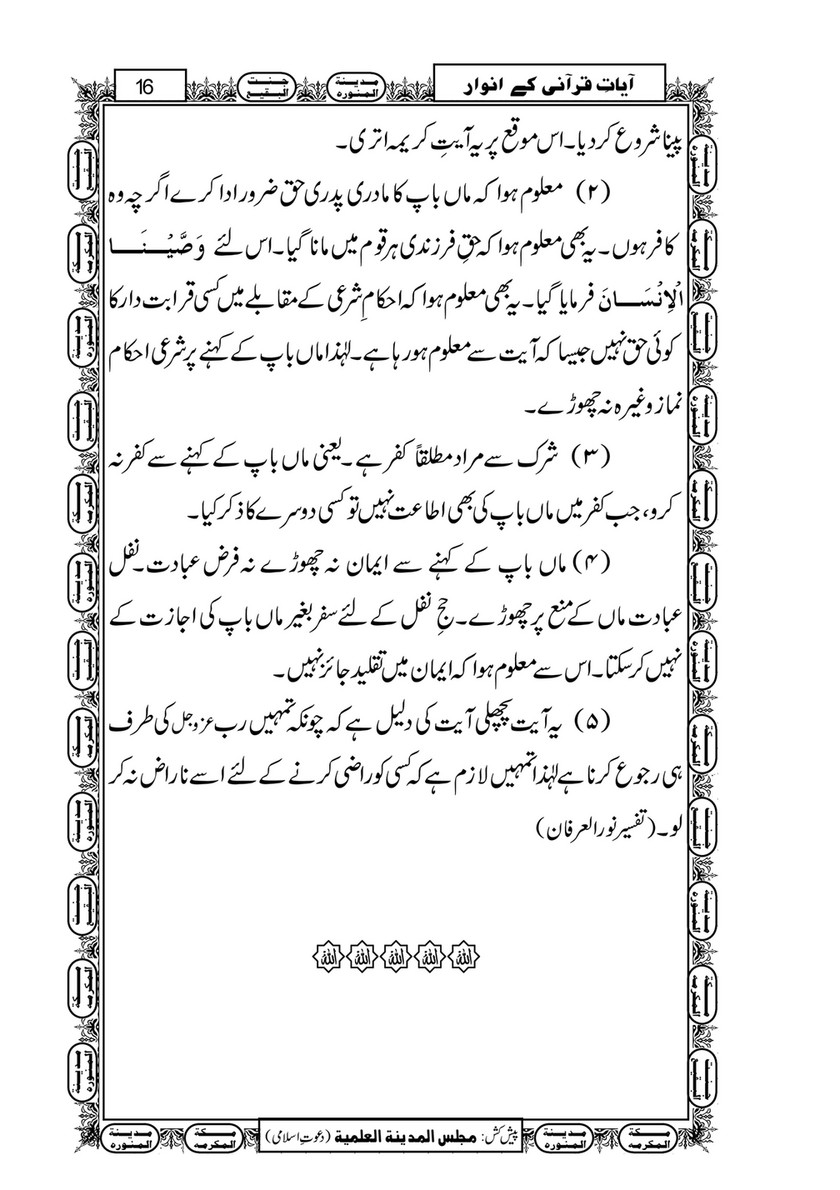 آیاتِ قرآنی کے انوار
مدینة المنوره
جنت البقیع
16
پینا شروع کر دیا۔ اس موقع پر یہ آیتِ کریمہ اتری۔
(۲) معلوم ہوا کہ ماں باپ کا مادری پدری حق ضرور ادا کرے اگرچہ وہ
کافر ہوں۔ یہ بھی معلوم ہوا کہ حقِ فرزندی ہر قوم میں مانا گیا۔ اس لئے وَصَّیْنَا
الْاِنْسَانَ فرمایا گیا۔ یہ بھی معلوم ہوا کہ احکامِ شرعی کے مقابلے میں کسی قرابت دار کا
کوئی حق نہیں جیسا کہ آیت سے معلوم ہو رہا ہے۔ لہٰذا ماں باپ کے کہنے پر شرعی احکام
نماز وغیرہ نہ چھوڑے۔
(۳) شرک سے مراد مطلقاً کفر ہے۔ یعنی ماں باپ کے کہنے سے کفر نہ
کرو، جب کفر میں ماں باپ کی بھی اطاعت نہیں تو کسی دوسرے کا ذکر کیا۔
(۴) ماں باپ کے کہنے سے ایمان نہ چھوڑے نہ فرض عبادت۔ نفل
عبادت ماں کے منع پر چھوڑے۔ حجِ نفل کے لئے سفر بغیر ماں باپ کی اجازت کے
نہیں کر سکتا۔ اس سے معلوم ہوا کہ ایمان میں تقلید جائز نہیں۔
(۵) یہ آیت پچھلی آیت کی دلیل ہے کہ چونکہ تمہیں رب عزوجل کی طرف
ہی رجوع کرنا ہے لہٰذا تمہیں لازم ہے کہ کسی کو راضی کرنے کے لئے اسے ناراض نہ کر
لو۔ (تفسیر نور العرفان)
اللہ اللہ اللہ اللہ اللہ
مكة المكرمه
مدينة المنوره
پیش کش: مجلس المدینة العلمیة (دعوتِ اسلامی)
مكة المكرمه
مدينة المنوره